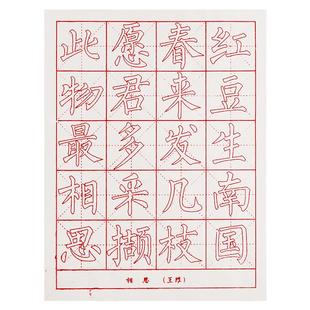 红豆生南国
春来发几枝
愿君多采撷
此物最相思
相思(王维)